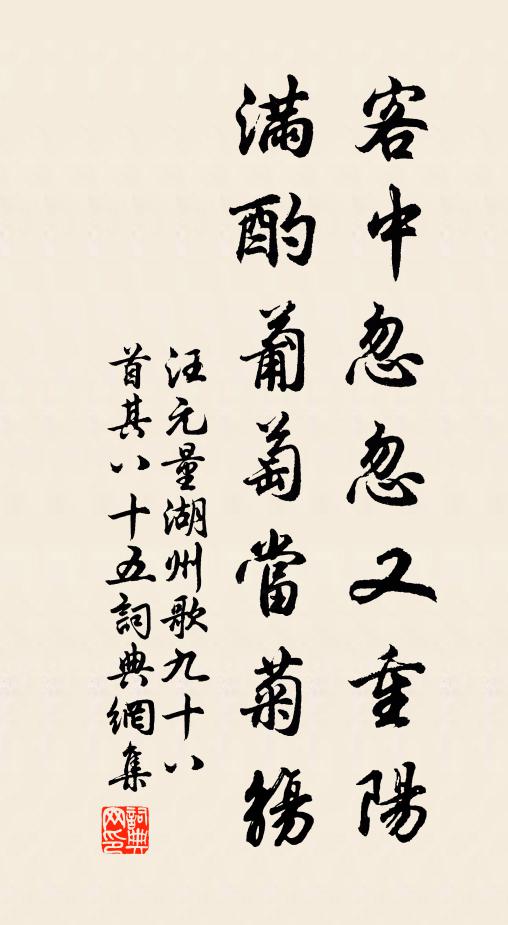 客中忽忽又重陽
滿酌葡萄當菊觴
汪元量湖州歌九十八
首其八十五詞典網集
詞典
網印